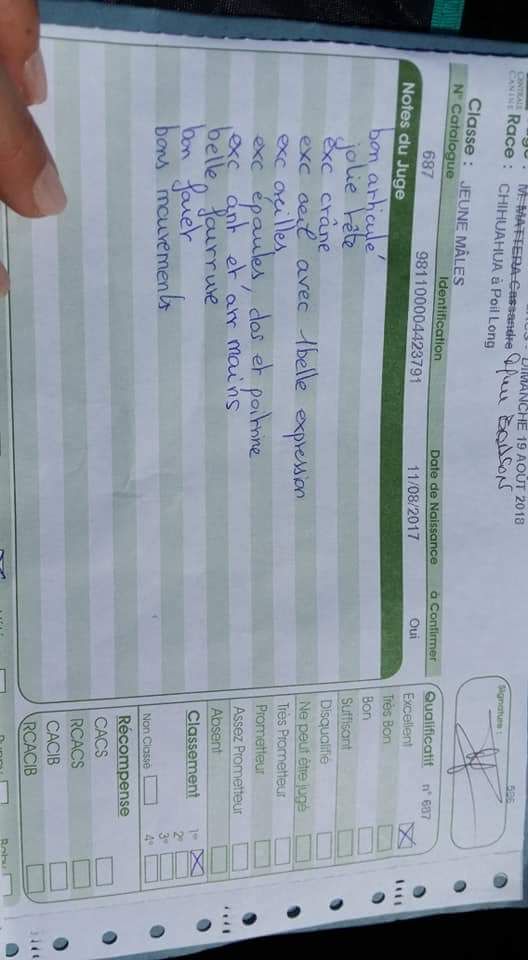 DIMANCHE 19 AOUT 2018
CENTRALE
CANINE
M. MATTERA Cassandre
Race : CHIHUAHUA à Poil Long
Classe : JEUNE MÂLES
Signature :
596
N° Catalogue Identification Date de Naissance à Confirmer
687 981100004423791 11/08/2017 Oui
Notes du Juge
bon articulé
jolie tête
exc crâne
exc oeil avec 1 belle expression
exc oreilles
exc épaules, dos et poitrine
exc ant et arr mains
belle fourrure
bon fouet
bons mouvements
Qualificatif n° 687
Excellent
Très Bon
Bon
Suffisant
Disqualifié
Ne peut être jugé
Très Prometteur
Prometteur
Assez Prometteur
Absent
Classement
1°
2°
3°
4°
Non Classé
Récompense
CACS
RCACS
CACIB
RCACIB